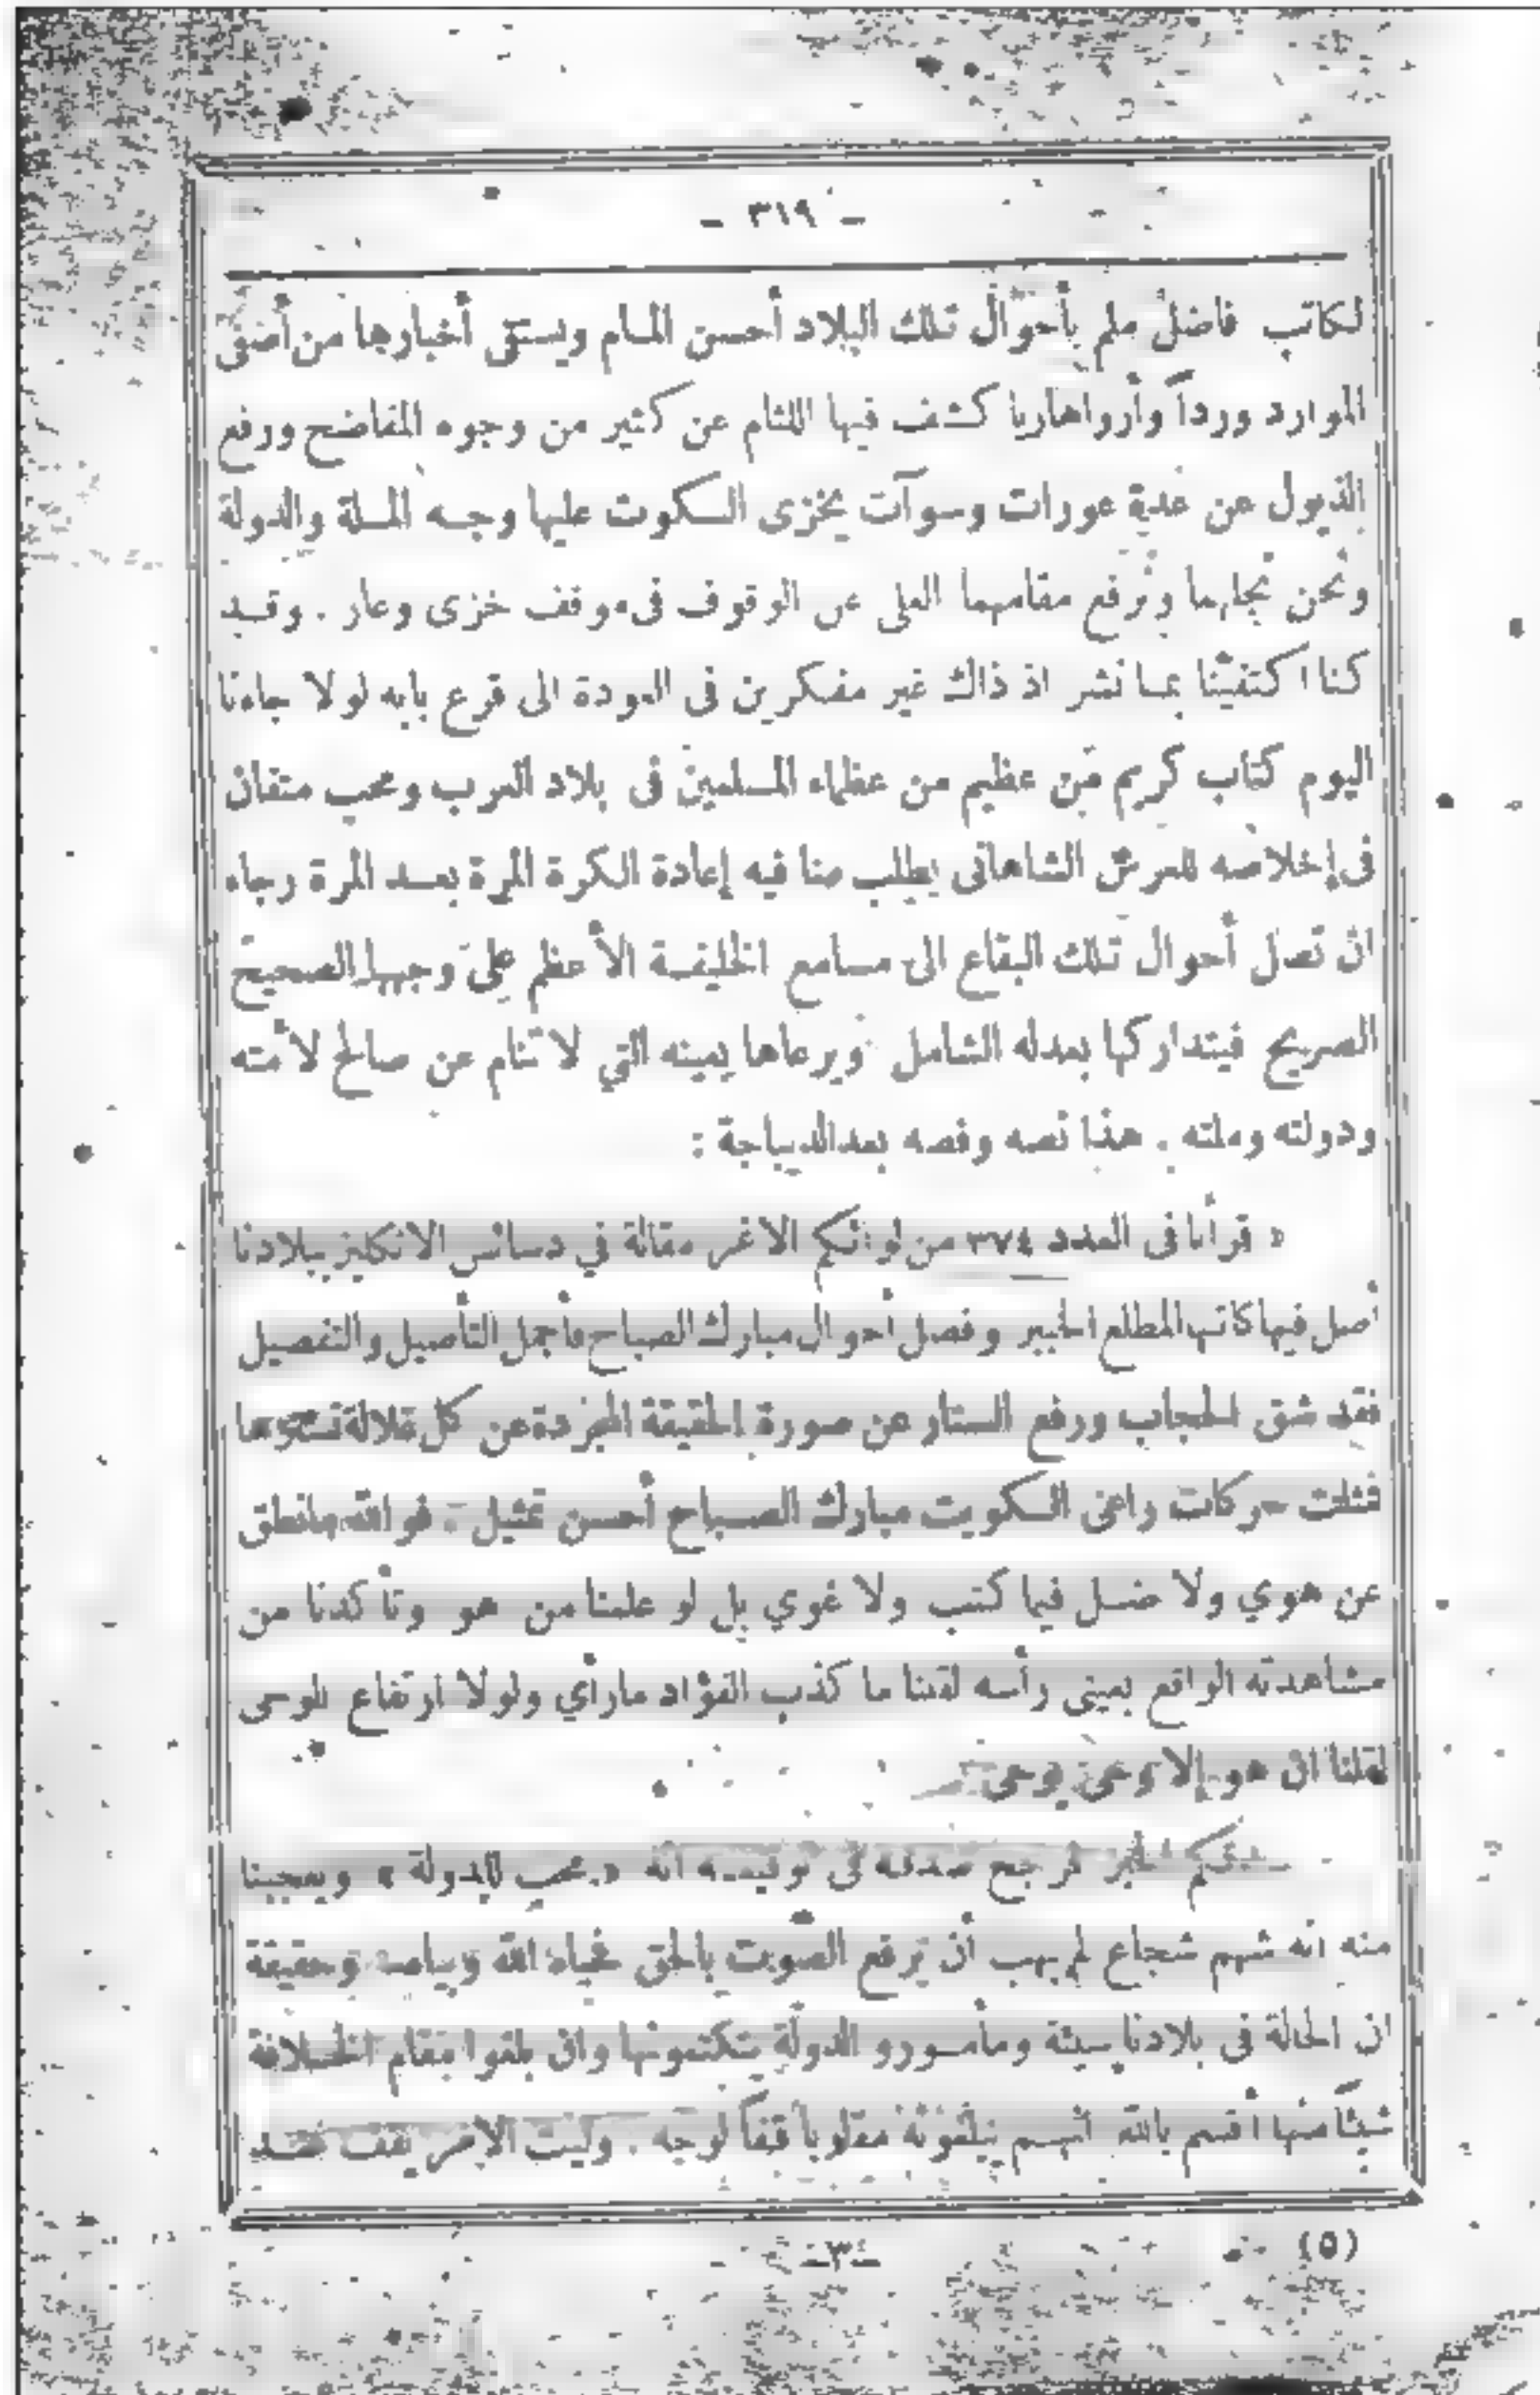 – ٣١٩ –
لكاتب فاضل ملم بأحوال تلك البلاد أحسن المام ويستقى أخبارها من أصفى
الموارد ورداً وأرواهاريا كشف فيها اللثام عن كثير من وجوه المفاضح ورفع
الذيول عن عدة عورات وسوآت يخزى السكوت عليها وجه الملة والدولة
ونحن نجلهما ونرفع مقامهما العلى عن الوقوف فى موقف خزى وعار . وقد
كنا اكتفينا بما نشر اذ ذاك غير مفكرين فى العودة الى قرع بابه لولا جاءنا
اليوم كتاب كريم من عظيم من عظماء المسلمين فى بلاد العرب ومحب متفان
فى إخلاصه للعرش الشاهانى يطلب منا فيه إعادة الكرة المرة بعد المرة رجاء
ان تصل أحوال تلك البقاع الى مسامع الخليفة الأعظم على وجهها الصحيح
الصريح فيتداركها بعدله الشامل ويرعاها بعينه التي لا تنام عن صالح لأمته
ودولته وملته . هذا نصه وفصه بعد الديباجة :
« قرأنا فى العدد ٣٧٤ من لوائكم الاغر مقالة في دسائس الانكليز ببلادنا
أصل فيها كاتبها المطلع الخبير وفصل أحوال مبارك الصباح فأجمل التأصيل والتفصيل
فقد شق الحجاب ورفع الستار عن صورة الحقيقة المجردة عن كل
فمثلت حركات راعى الكويت مبارك الصباح أحسن تمثيل . فوالله ما نطق
عن هوي ولا ضل فيما كتب ولا غوي بل لو علمنا من هو وتأكدنا من
مشاهدته الواقع بعينى رأسه لقلنا ما كذب الفؤاد مارأي ولولا ارتفاع الوحى
لقلنا ان هو إلا وحى يوحى
فى توقيعه انه « محب للدولة » ويعجبنا
منه انه شهم شجاع لم يهب أن يرفع الصوت بالحق فحياه الله وبياه وحقيقة
ان الحالة فى بلادنا سيئة ومأمورو الدولة يتكتمونها وان بلغوا مقام الخلافة
شيئا منها أقسم بالله انهم يبلغونه مقلوبا قفاً لوجه . وليت الامر يقف عند
(٥)
–٣–